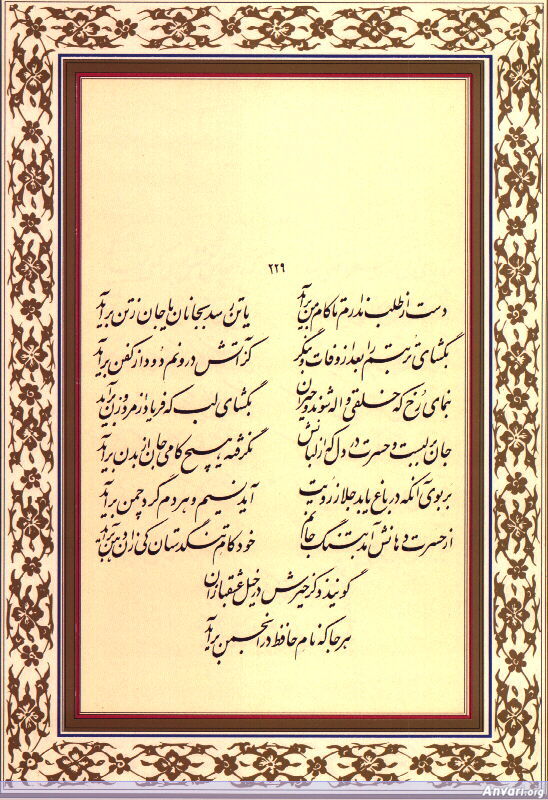 ۲۲۹
دست از طلب ندارم تا کام من برآید یا تن رسد بجانان یا جان ز تن برآید
بگشای تربتم را بعد از وفات و بنگر کز آتش درونم دود از کفن برآید
بنمای رخ که خلقی واله شوند و حیران بگشای لب که فریاد از مرد و زن برآید
جان بر لبست و حسرت در دل که از لبانش نگرفته هیچ کامی جان از بدن برآید
بر بوی آنکه در باغ یابد جلا ز رویت آید نسیم و هر دم گرد چمن برآید
از حسرت دهانش آمد بتنگ جانم خود کام تنگدستان کی زان دهن برآید
گویند ذکر خیرش در خیل عشقبازان
هر جا که نام حافظ در انجمن برآید
Anvari.org